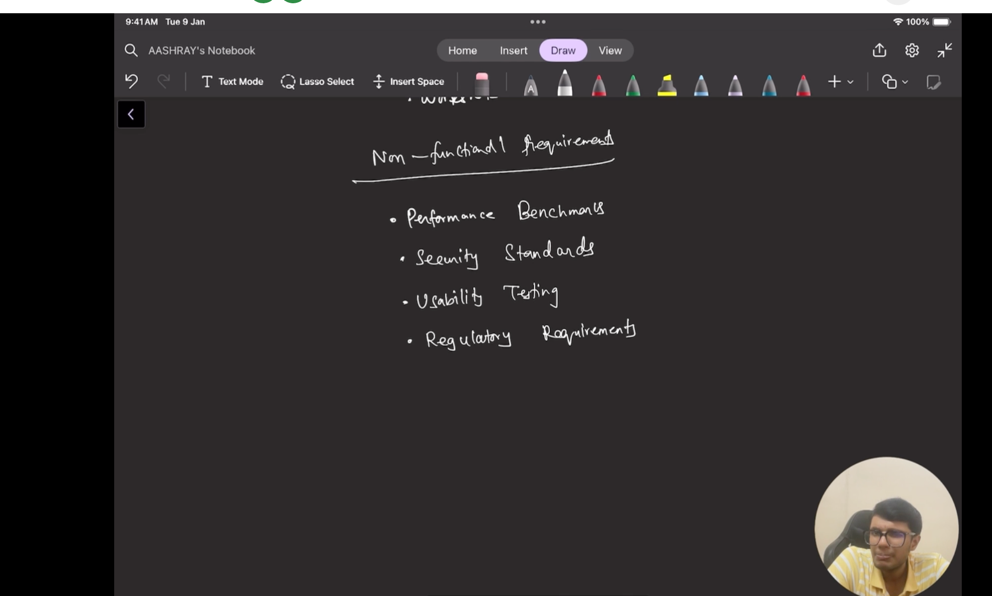 9:41 AM Tue 9 Jan
100%
AASHRAY's Notebook
Home Insert Draw View
Text Mode Lasso Select Insert Space
Non-functional Requirements
• Performance Benchmarks
• Security Standards
• Usability Testing
• Regulatory Requirements